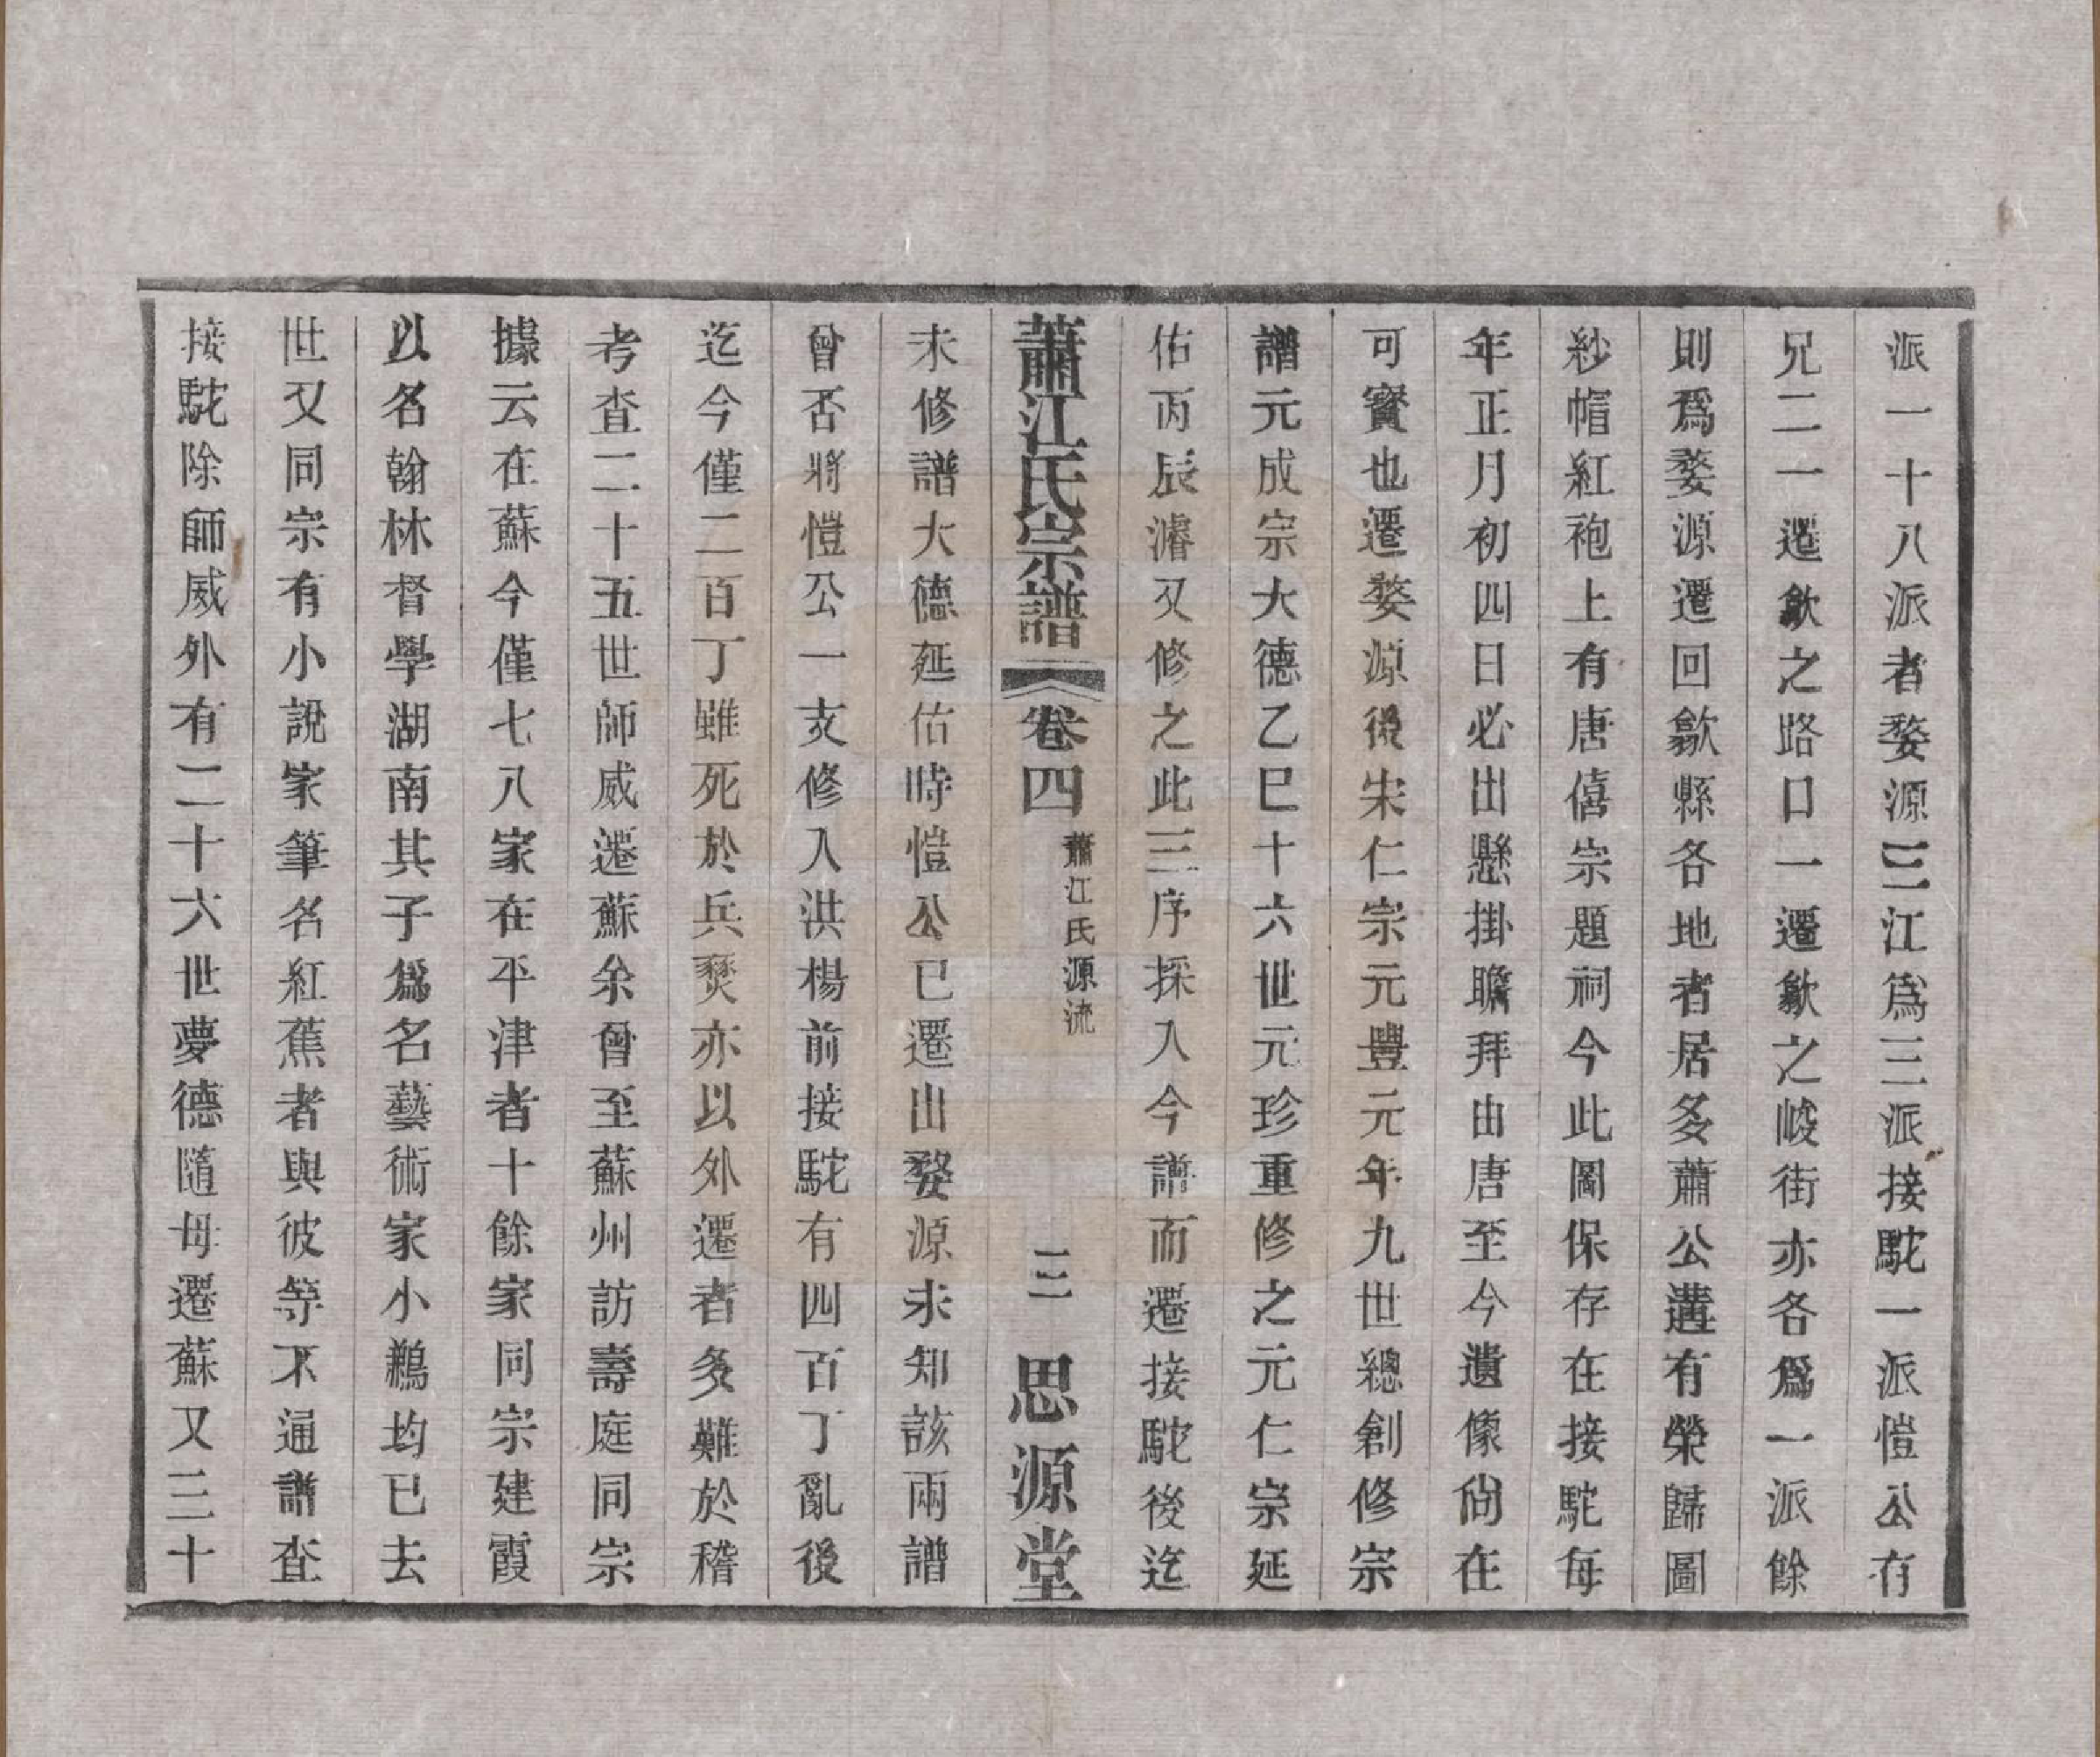 派一十八派者婺源三江爲三派接駝一派愷公有
兄二一遷歙之路口一遷歙之峻街亦各爲一派餘
則爲婺源遷回歙縣各地者居多蕭公遘有榮歸圖
紗帽紅袍上有唐僖宗題祠今此圖保存在接駝每
年正月初四日必出懸掛瞻拜由唐至今遺像尙在
可寳也遷婺源後宋仁宗元豐元年九世總創修宗
譜元成宗大德乙巳十六世元珍重修之元仁宗延
佑丙辰濬又修之此三序採入今譜而遷接駝後迄
蕭江氏宗譜 卷四 蕭江氏源流 三 思源堂
未修譜大德延佑時愷公已遷出婺源未知該兩譜
曾否將愷公一支修入洪楊前接駝有四百丁亂後
迄今僅二百丁雖死於兵燹亦以外遷者多難於稽
考查二十五世師威遷蘇余曾至蘇州訪壽庭同宗
據云在蘇今僅七八家在平津者十餘家同宗建霞
以名翰林督學湖南其子爲名藝術家小鶼均已去
世又同宗有小說家筆名紅蕉者與彼等不通譜查
接駝除師威外有二十六世夢德隨母遷蘇又三十